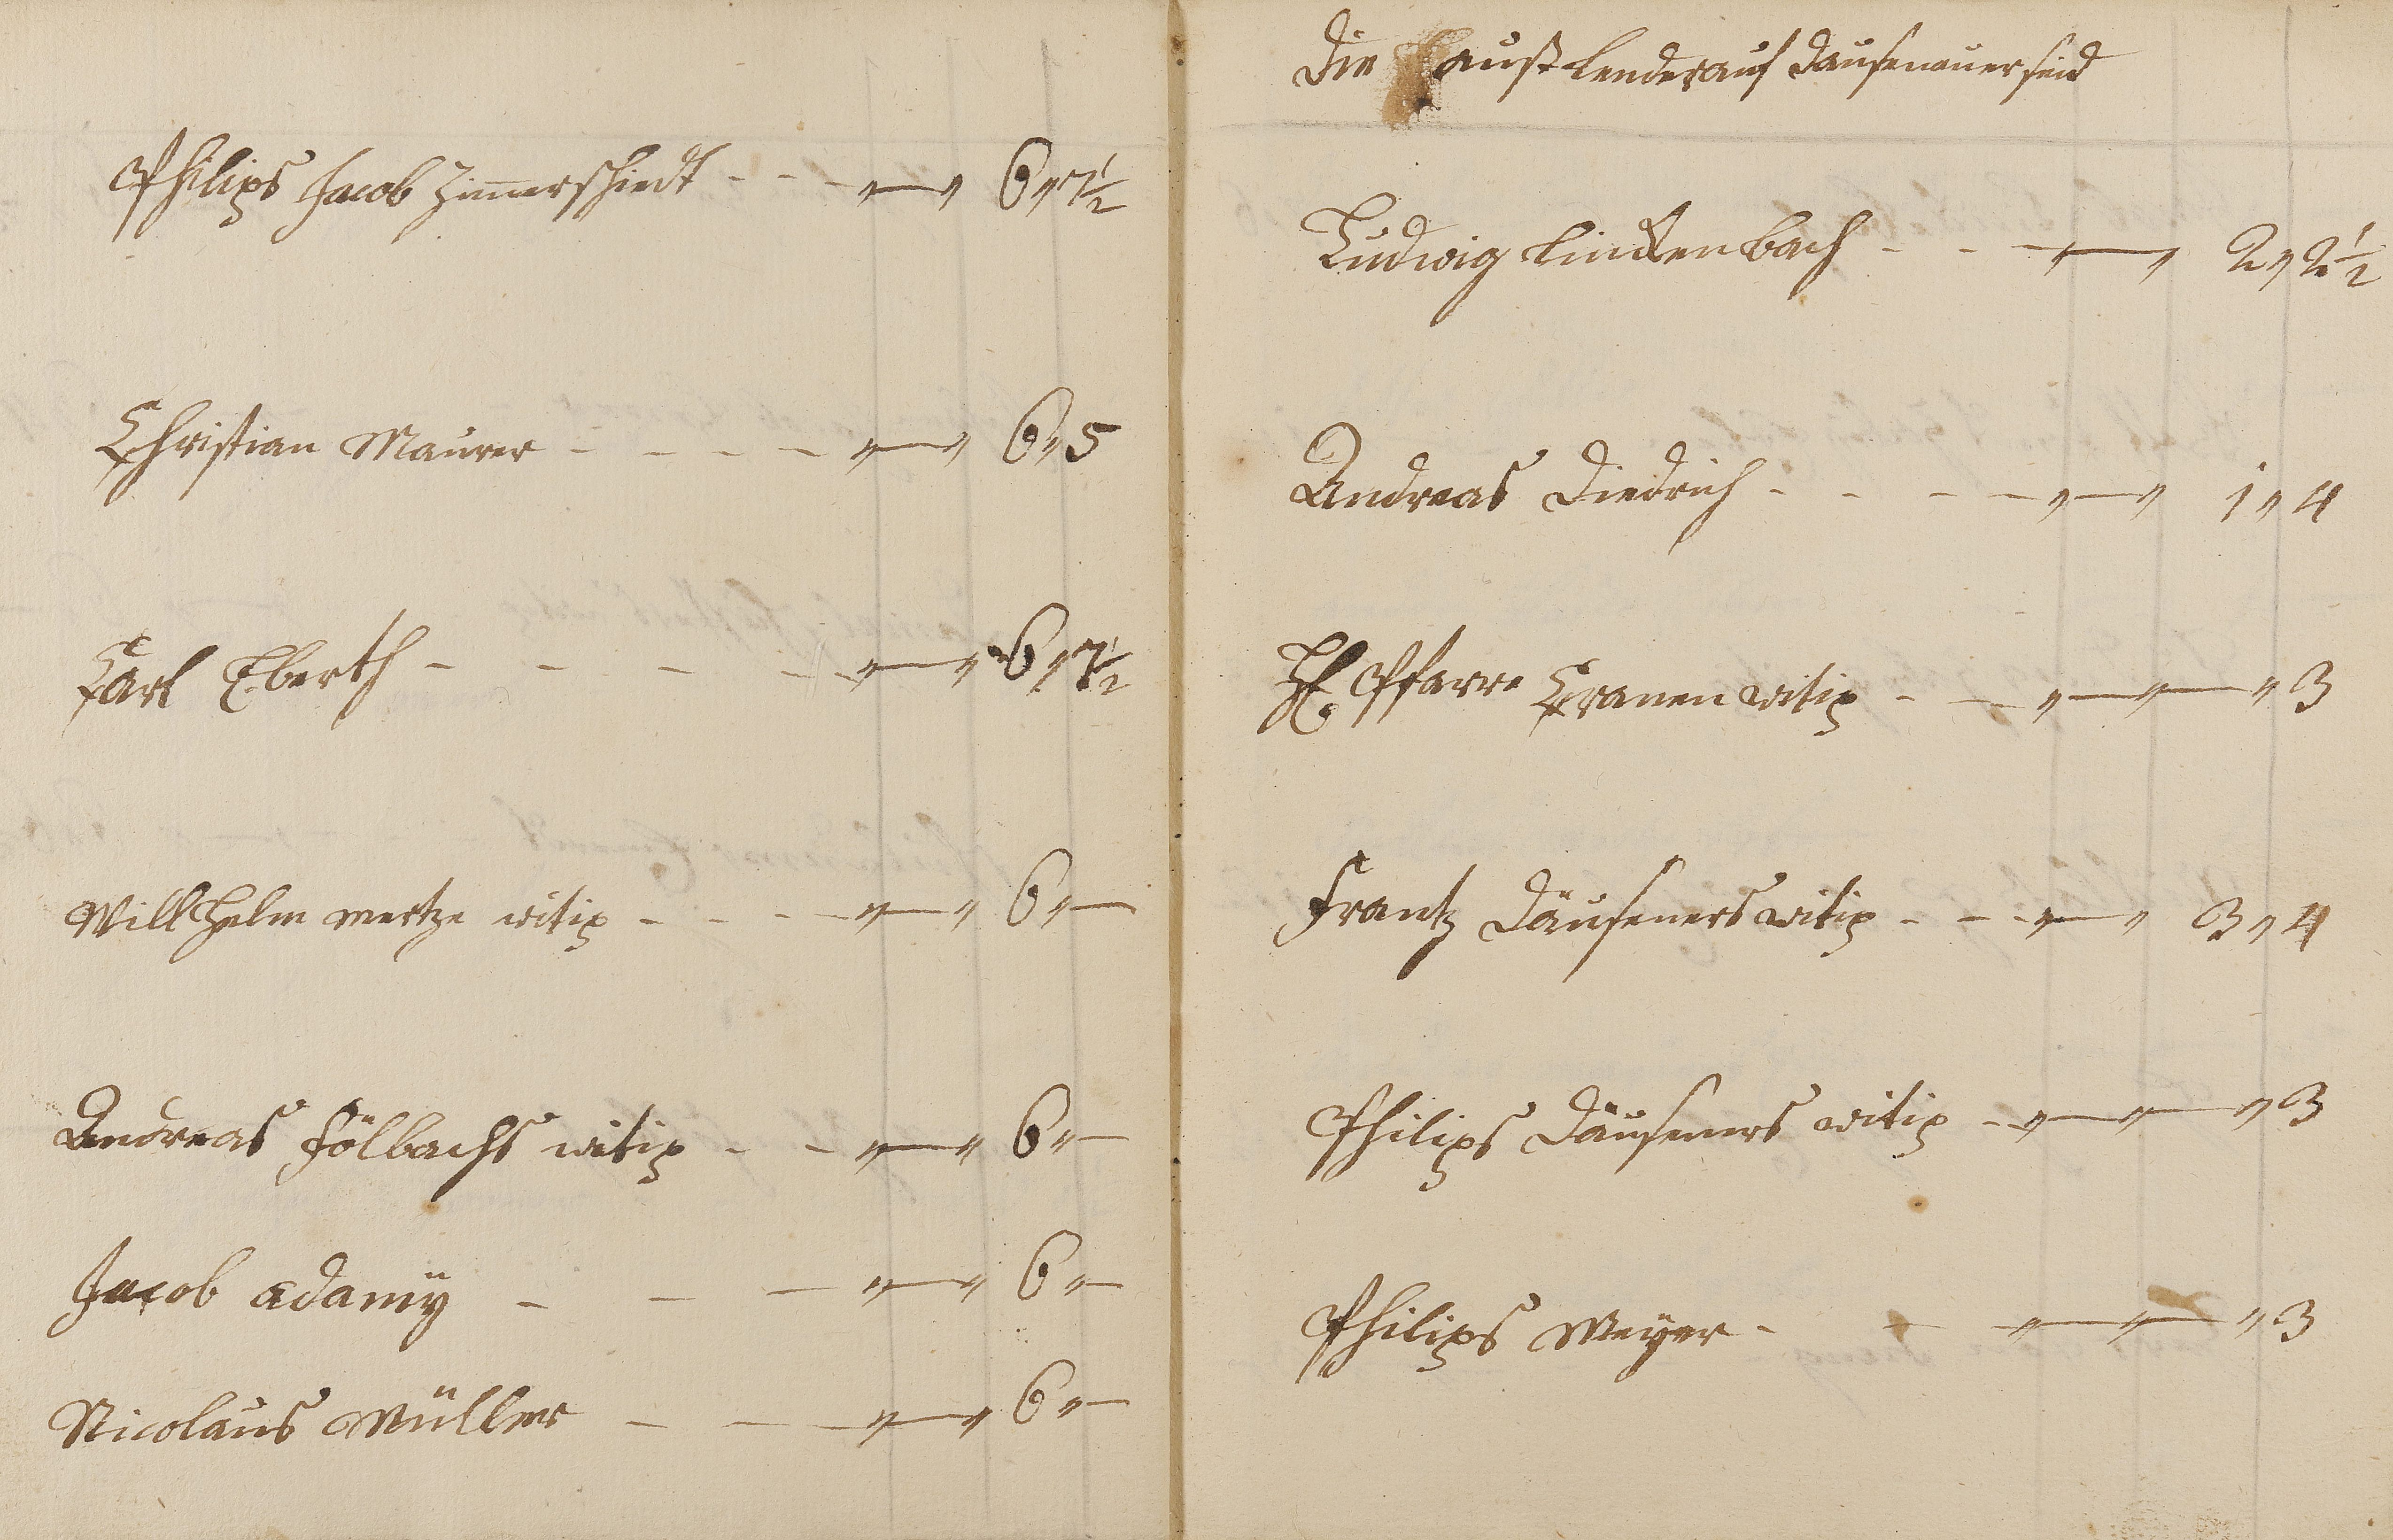 Philips Jacob Zimerschiedt - - - " — " 6 " 7 1/2
Christian Maurer - - - - " — " 6 " 5
Carl Eberth - - - - " — " 6 " 7 1/2
Willhelm mertze witip - - - - " — " 6 " —
Andreas fölbachs witip - - " — " 6 " —
Jacob adamÿ - - - " — " 6 " —
Nicolaus Müller - - - " — " 6 " —
Die außlender auf Dausenauer seid
Ludwig Linkenbach - - - " — " 2 " 2 1/2
Andreas Diedrich - - - - " — " 1 " 4
H. Pfarre Cranen witip - - " — " — " 3
Frantz Däuseners witip - - - " — " 3 " 4
Philips Däuseners witip - " — " — " 3
Philips Meÿer - - " — " — " 3